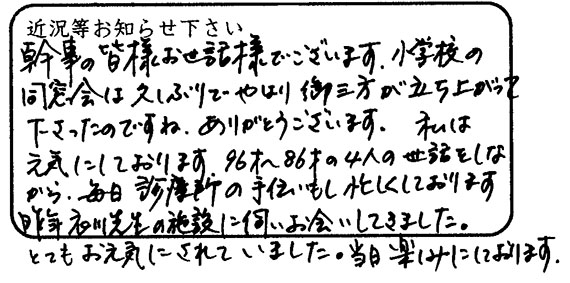 近況等お知らせ下さい
幹事の皆様お世話様でございます。小学校の
同窓会は久しぶりでやはり御三方が立ち上がって
下さったのですね。ありがとうございます。 私は
元気にしております。96才〜86才の4人の世話をしな
がら、毎日診療所の手伝いもし忙しくしております
昨年 川先生の施設に伺いお会いしてきました。
とてもお元気にされていました。当日楽しみにしております。